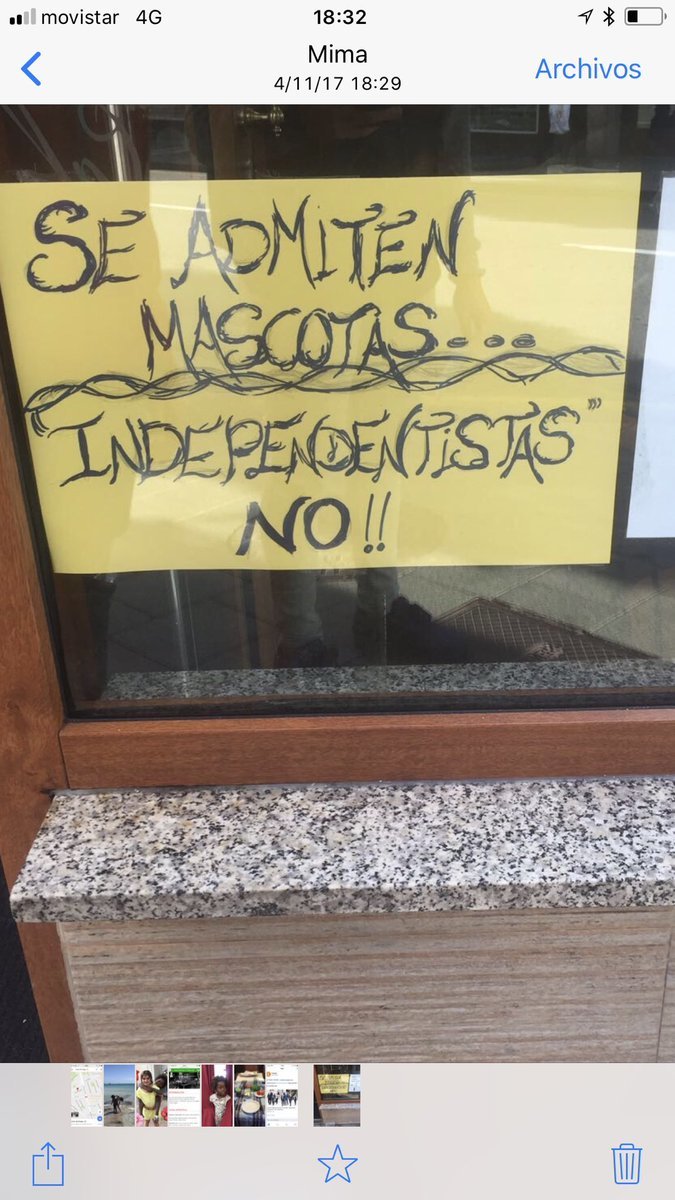 movistar 4G 18:32
Mima
4/11/17 18:29
Archivos
SE ADMITEN
MASCOTAS...
"INDEPENDENTISTAS"
NO!!